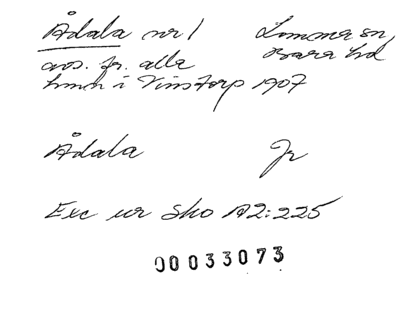 Ådala nr 1 Lomma sn,
avs. fr. alla Bara hd
hmn i Vinstorp 1907
Ådala Jr
Exc ur Sko A2:225
00033073